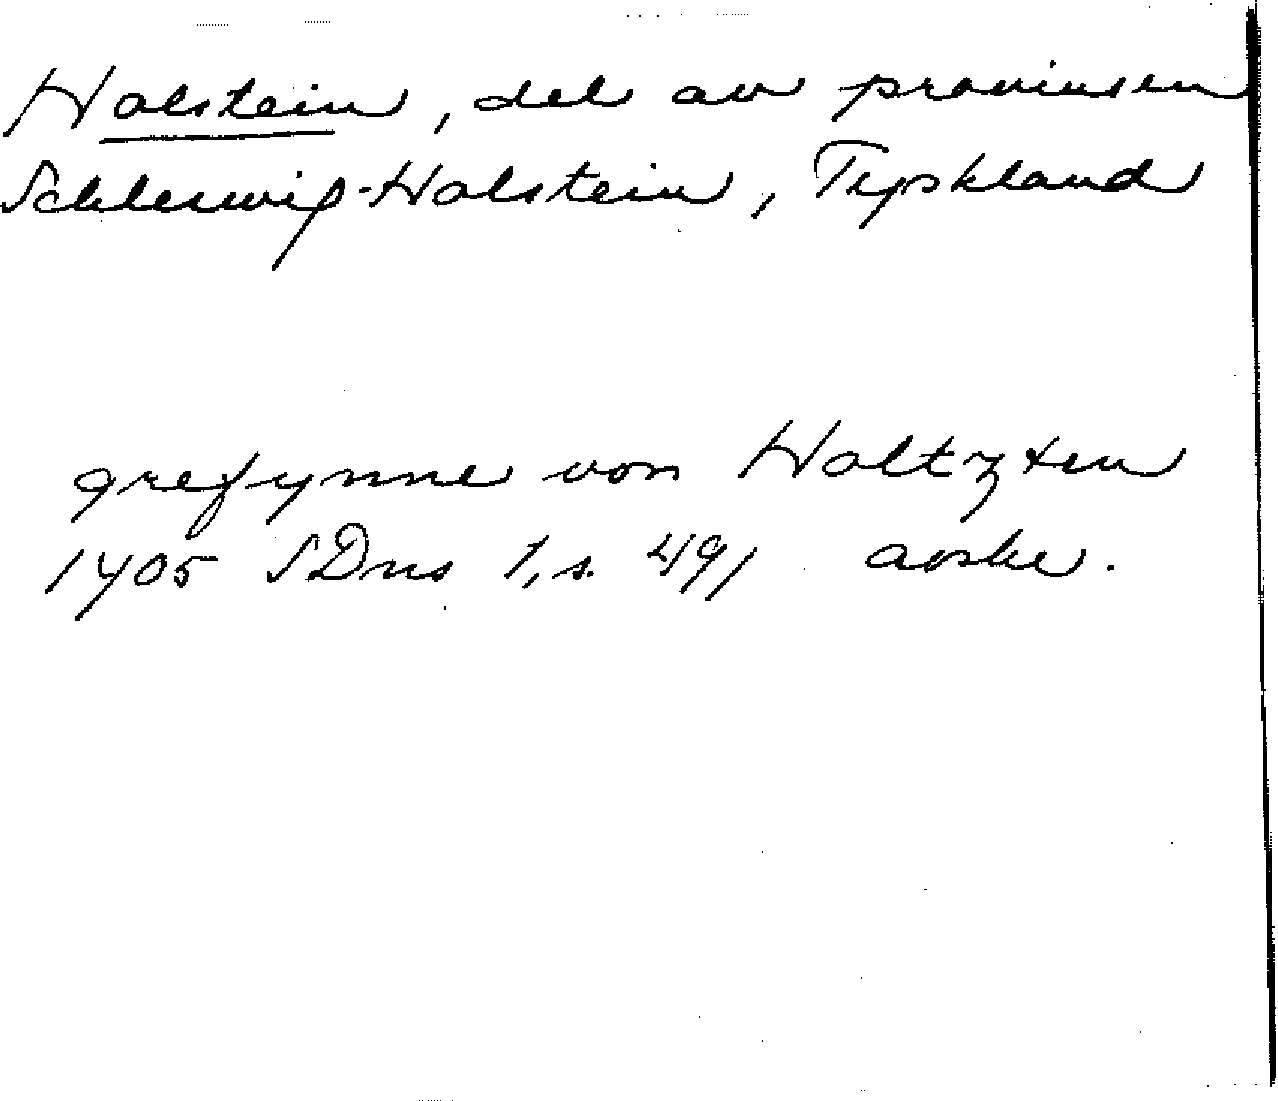 Holstein, del av provinsen
Schleswig-Holstein, Tyskland
grefynne von Holtzten
1405 SDns 1, s. 491 avskr.